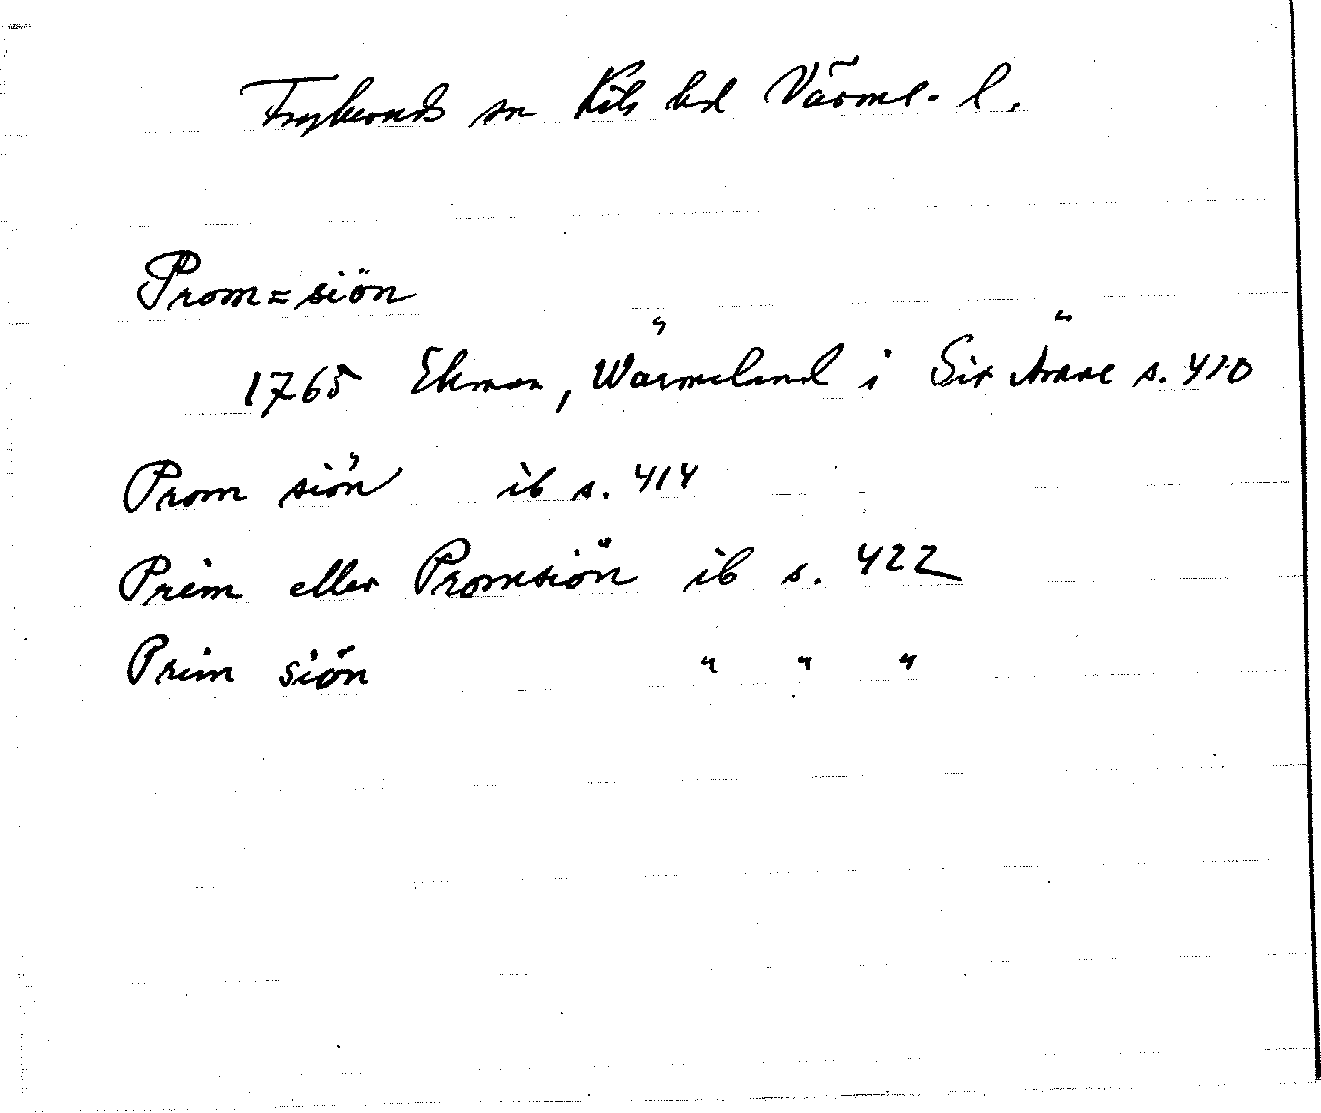 Frykeruds sn Kils hd Värml. l.
Prom=siön
1765 Ekman, Wärmeland i Sit ämne s. 410
Prom siön ib s. 414
Prim eller Promsiön ib s. 422
Prim siön " " "